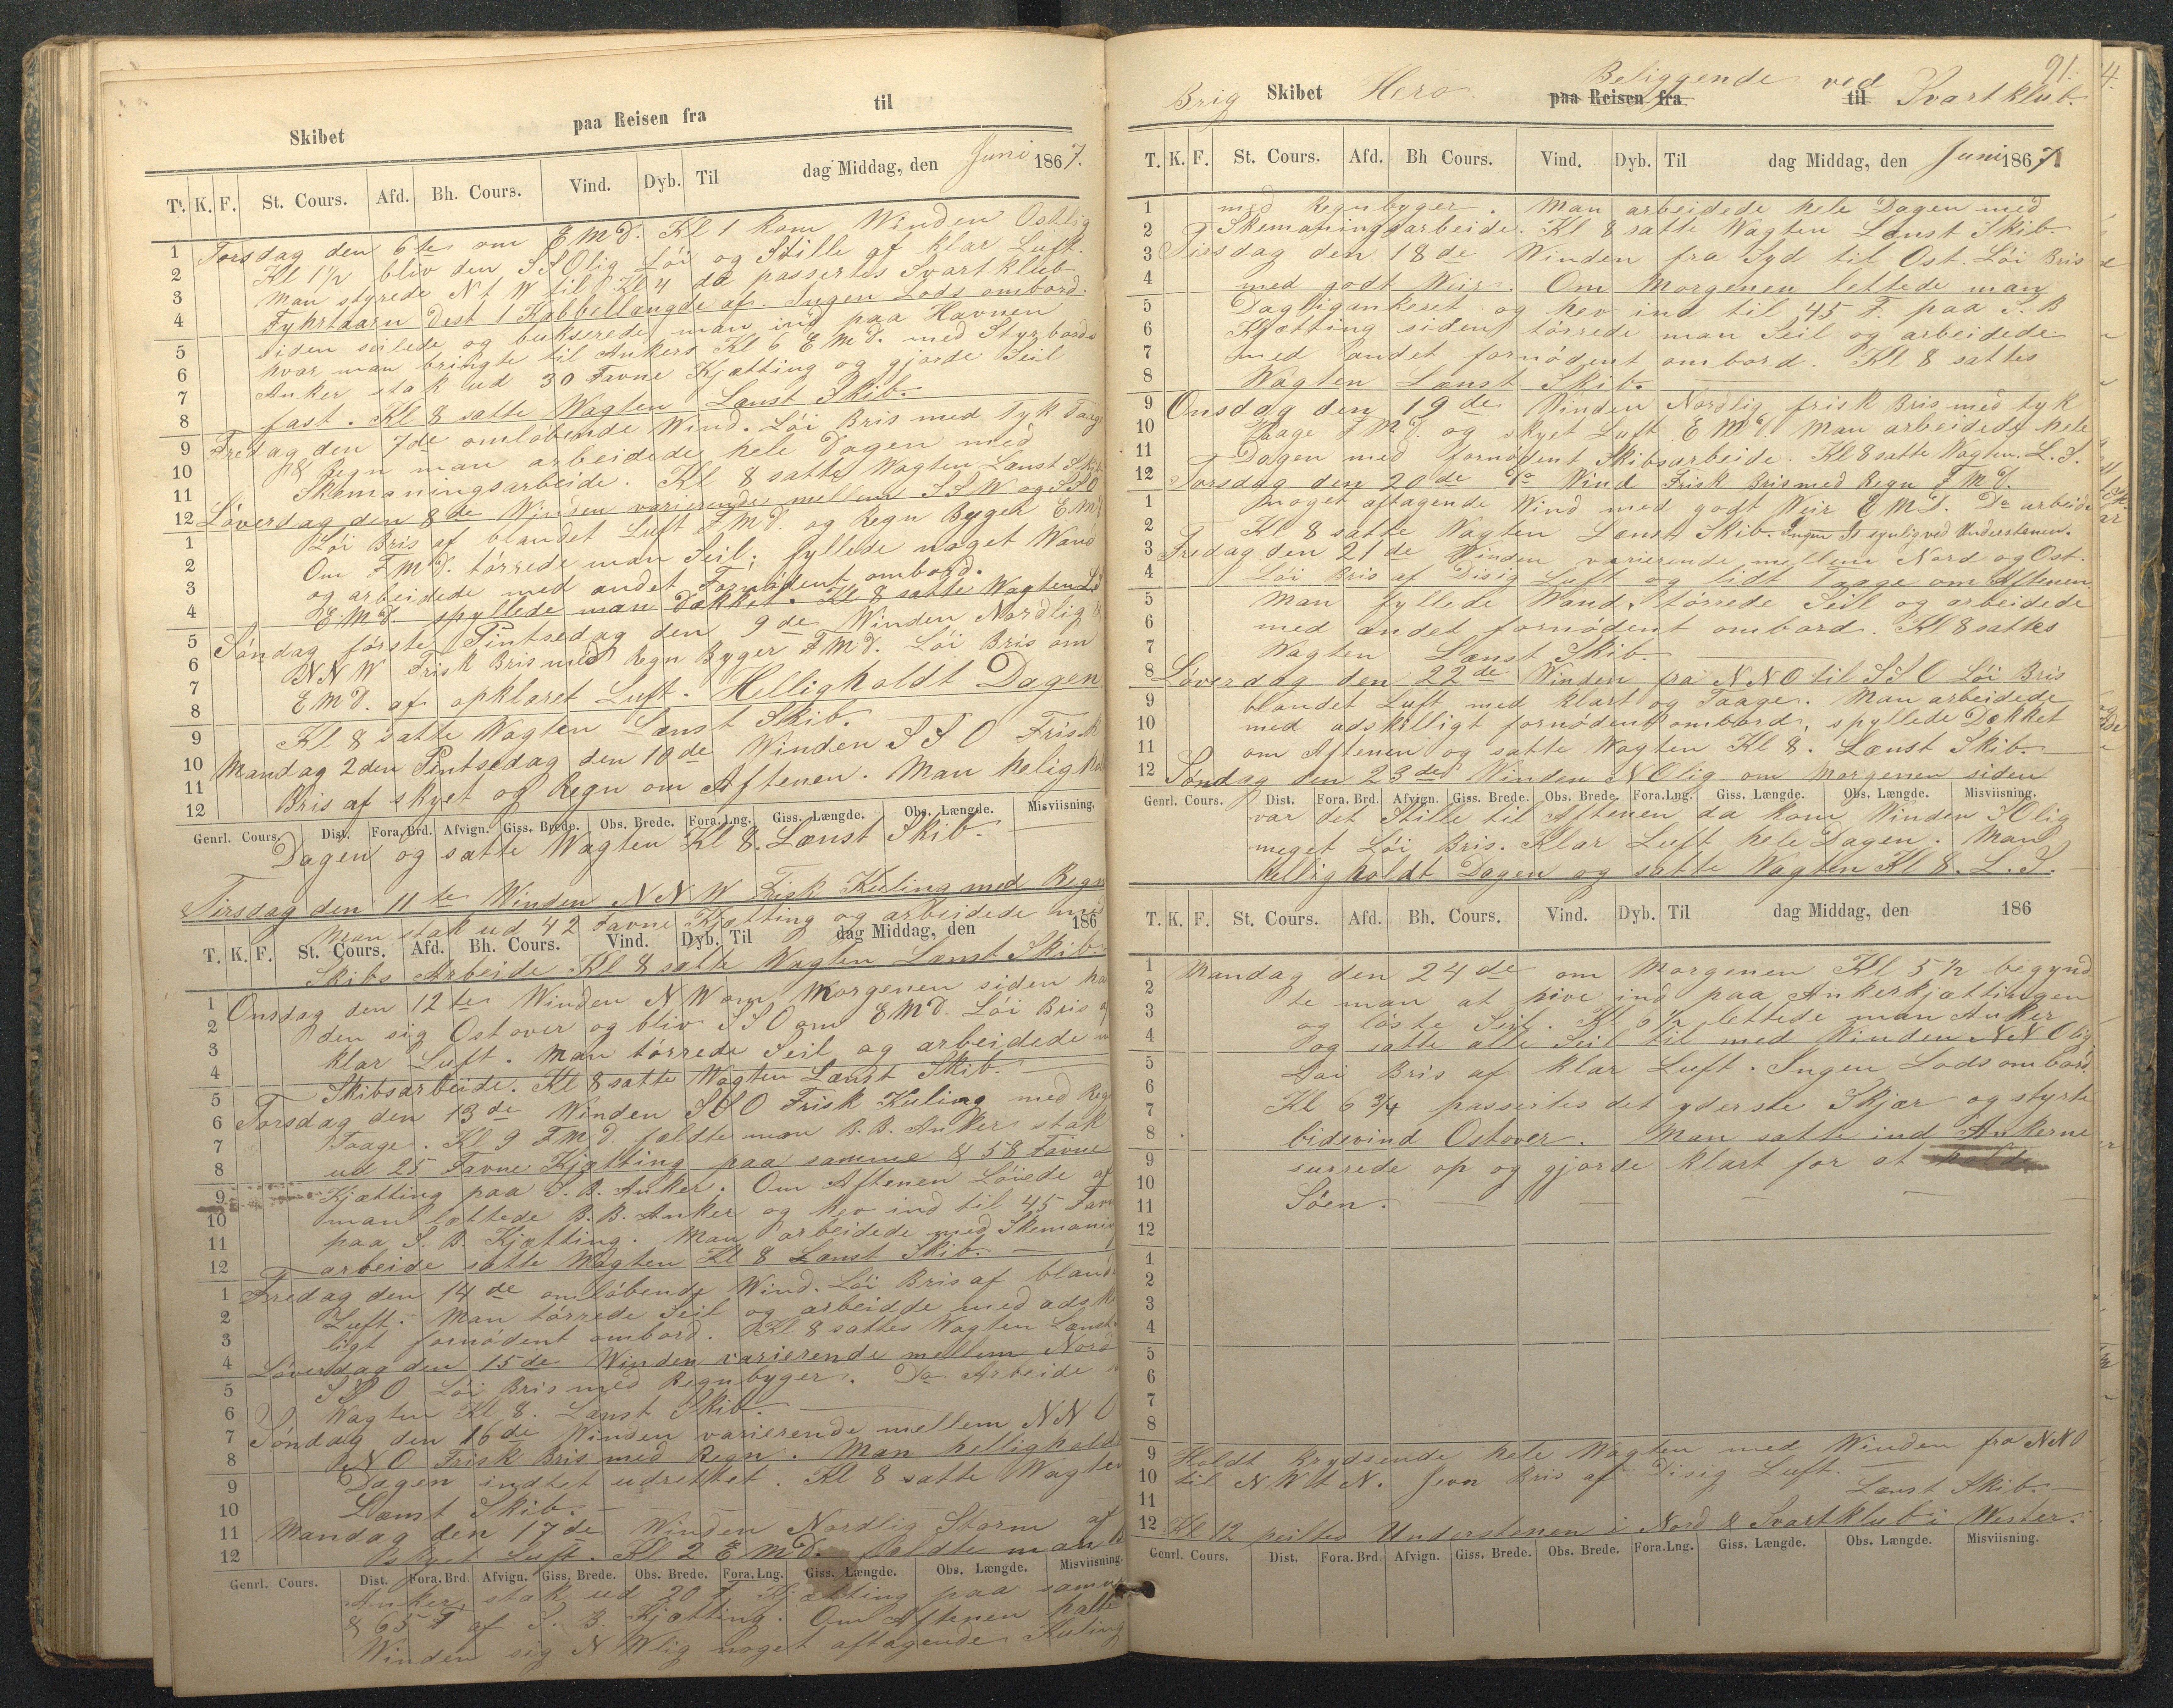 Skibet paa Reisen fra til
T. K. F. St. Cours. Afd. Bh. Cours. Vind. Dyb. Til dag Middag, den Juni 1867.
1 Torsdag den 6te om E M D. Kl 1 kom Winden Ostlig
2 Kl 1½ bliv den SSOlig Löi og Stille af klar Luft.
3 man styrede N t W til Kl 4 da passertes Svartklub
4 Fyhrtaarn Dest 1 Kabbellængde af. Ingen Lods ombord.
5 siden seilede og bukserede man ind paa Havnen
6 hvor man bringte til Ankers Kl 6 E M D. med Styrbords
7 Anker stak ud 30 Favne Kjætting og gjorde Seil
8 fast. Kl 8 satte Wagten Lænst Skib.
9 Fredag den 7de omlöbende Wind. Löi Bris med Tyk Taage
10 & Regn man arbeidede hele Dagen med
11 Skemaningsarbeide. Kl 8 satte Wagten Lænst Skib
12 Löverdag den 8de Winden varierende mellem SSW og SSO
1 Löi Bris af blandet Luft F M D. og Regn Byger E M D
2 Om F M D. törrede man Seil; fyllede noget Wand
3 og arbeidede med andet Fornödent ombord.
4 E M D. spyllede man Dækket. Kl 8 satte Wagten L S
5 Söndag förste Pintsedag den 9de Winden Nordlig &
6 NNW Frisk Bris med Regn Byger F M D. Löi Bris om
7 E M D. af opklaret Luft. Helligholdt Dagen
8
9 Kl 8 satte Wagten Lænst Skib.
10 Mandag 2den Pintsedag den 10de Winden SSO Frisk
11 Bris af skyet og Regn om Aftenen. Man helighol
12
Genrl. Cours. Dist. Fora. Brd. Afvign. Giss. Brede. Obs. Brede. Fora. Lng. Giss. Længde. Obs. Længde. Misviisning.
Dagen og satte Wagten Kl 8. Lænst Skib.
Tirsdag den 11te Winden NNW Frisk Kuling med Regn
Man stak ud 42 Favne Kjætting og arbeidede med
T. K. F. St. Cours. Afd. Bh. Cours. Vind. Dyb. Til dag Middag, den 186
Skibs Arbeide Kl 8 satte Wagten Lænst Skib.
1 Onsdag den 12te Winden NW om Morgenen siden ha
2 den sig Ost over og bliv SSO om E M D. Löi Bris af
3 klar Luft. Man törrede Seil og arbeidede m
4 Skibsarbeide. Kl 8 satte Wagten Lænst Skib.
5
6 Torsdag den 13de Winden SSO Frisk Kuling med Reg
7 Taage. Kl 9 F M D. fældte man B. B. Anker stak
8 ud 25 Favne Kjætting paa samme & 58 Favne
9 Kjætting paa S. B. Anker. Om Aftenen Löiede af
10 man lættede B. B. Anker og hev ind til 45 Favn
11 paa S. B. Kjætting. Man arbeidede med Skemaning
12 arbeide satte Wagten Kl 8 Lænst Skib.
1 Fredag den 14de omlöbende Wind. Löi Bris af bland
2 Luft. Man törrede Seil og arbeidde med adskil
3 ligt fornödent ombord. Kl 8 sattes Wagten Lænst
4 Löverdag den 15de Winden varierende mellem Nord
5 SSO Löi Bris med Regnbyger. Do Arbeide
6 Wagten Kl 8. Lænst Skib.
7 Söndag den 16de Winden varierende mellem NNO
8 NO Frisk Bris med Regn. Man helligholdt
9 Dagen indtet udrettet. Kl 8 satte Wagten
10 Lænst Skib.
11 Mandag den 17de Winden Nordlig Storm af
12 skyet Luft. Kl 2 E M D. fældte man B
Genrl. Cours. Dist. Fora. Brd. Afvign. Giss. Brede. Obs. Brede. Fora. Lng. Giss. Længde. Obs. Længde. Misviisning.
Anker stak ud 20 F. Kjætting paa samme
& 65 F af S. B. Kjætting. Om Aftenen halte
Winden sig NWlig noget aftagende Kuling
91.
Brig Skibet Hero. paa Reisen fra Beliggende ved til Svartklub.
T. K. F. St. Cours. Afd. Bh Cours. Vind. Dyb. Til dag Middag, den Juni 1867
1 med Regnbyger. Man arbeidede hele Dagen med
2 Skemaningsarbeide. Kl 8 satte Wagten Lænst Skib.
3 Tirsdag den 18de Winden fra Syd til Ost. Löi Bris
4 med godt Weir. Om Morgenen lettede man
5 Dagligankeret og hev ind til 45 F. paa S. B
6 Kjætting siden törrede man Seil og arbeidede
7 med andet fornödent ombord. Kl 8 sattes
8 Wagten Lænst Skib.
9 Onsdag den 19de Winden Nordlig frisk Bris med tyk
10 Taage F M D. og skyet Luft E M D. Man arbeidede hele
11 Dagen med fornödent Skibsarbeide. Kl 8 satte Wagten. L. S.
12 Torsdag den 20de Do Wind Frisk Bris med Regn F M D.
1 noget aftagende Wind med godt Weir E M D. Do arbeide
2 Kl 8 satte Wagten Lænst Skib. Ingen Is synlig ved Understenen.
3 Fredag den 21de Winden varierende mellem Nord og Ost.
4 Löi Bris af Disig Luft og lidt Taage om Aftenen
5 Man fyllede Wand, törrede Seil og arbeidede
6 med andet fornödent ombord. Kl 8 sattes
7 Wagten Lænst Skib.
8 Löverdag den 22de Winden fra NNO til SSO Löi Bris
9 blandet Luft med klart og Taage. Man arbeidede
10 med adskilligt fornödent ombord, spyllede Dækket
11 om Aftenen og satte Wagten Kl 8. Lænst Skib.
12 Söndag den 23de Winden NOlig om Morgenen siden
Genrl. Cours. Dist. Fora. Brd. Afvign. Giss. Brede. Obs. Brede. Fora. Lng. Giss. Længde. Obs. Længde. Misviisning.
var det Stille til Aftenen da kom Winden SOlig
meget Löi Bris. Klar Luft hele Dagen. Man
helligholdt Dagen og satte Wagten Kl 8. L. S.
T. K. F. St. Cours. Afd. Bh. Cours. Vind. Dyb. Til dag Middag, den 186
1 Mandag den 24de om Morgenen Kl 5½ begynd
2 te man at hive ind paa Ankerkjættingen
3 og löste Seil. Kl 6½ lettede man Anker
4 og satte alle Seil til med Winden NNOlig
5 Löi Bris af klar Luft. Ingen Lods ombord
6 Kl 6¾ passertes det yderste Skjær og styrte
7
8 bidevind Ostover. Man satte ind Ankerne
9 surrede op og gjorde klart for at holde
10
11 Söen.
12
1
2
3
4
5
6
7
8
9 Holdt krydsende hele Wagten med Winden fra NNO
10 til NWtN. Jevn Bris af Disig Luft.
11 Lænst Skib.
12 Kl 12 peiltes Understenen i Nord & Svartklub i Wester.
Genrl. Cours. Dist. Fora. Brd. Afvign. Giss. Brede. Obs. Brede. Fora. Lng. Giss. Længde. Obs. Længde. Misviisning.